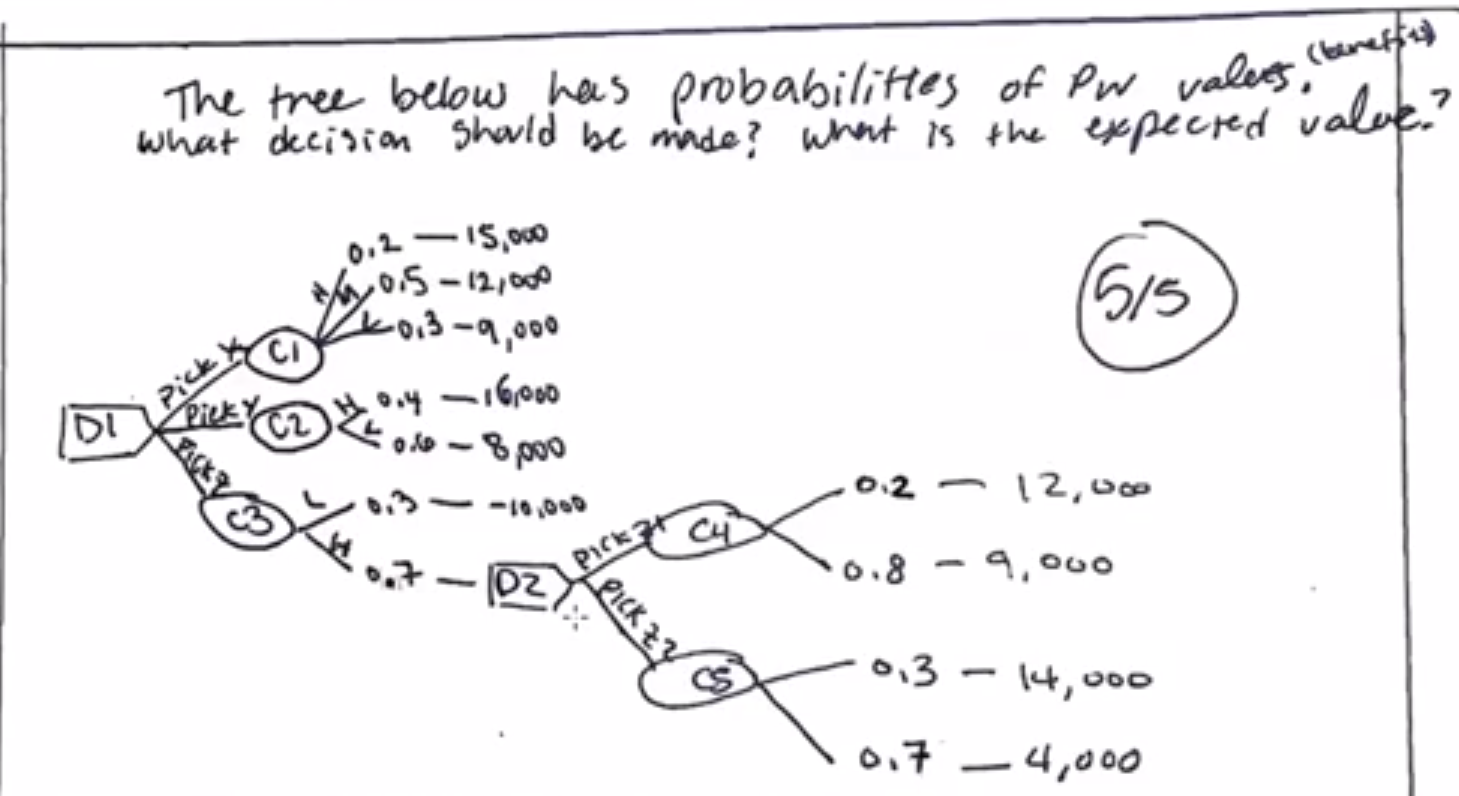 (benefits)
The tree below has probabilittes of PW values.
what decision should be made? what is the expected value?
0.2 — 15,000
H M 0.5 – 12,000
L 0.3 – 9,000
Pick X C1
5/5
D1 Pick Y C2 H 0.4 — 16,000
L 0.6 – 8,000
Pick Z C3 L 0.3 — -10,000
H 0.7 — D2
Pick Z1 C4 0.2 — 12,000
0.8 – 9,000
Pick Z2 C5 0.3 – 14,000
0.7 — 4,000